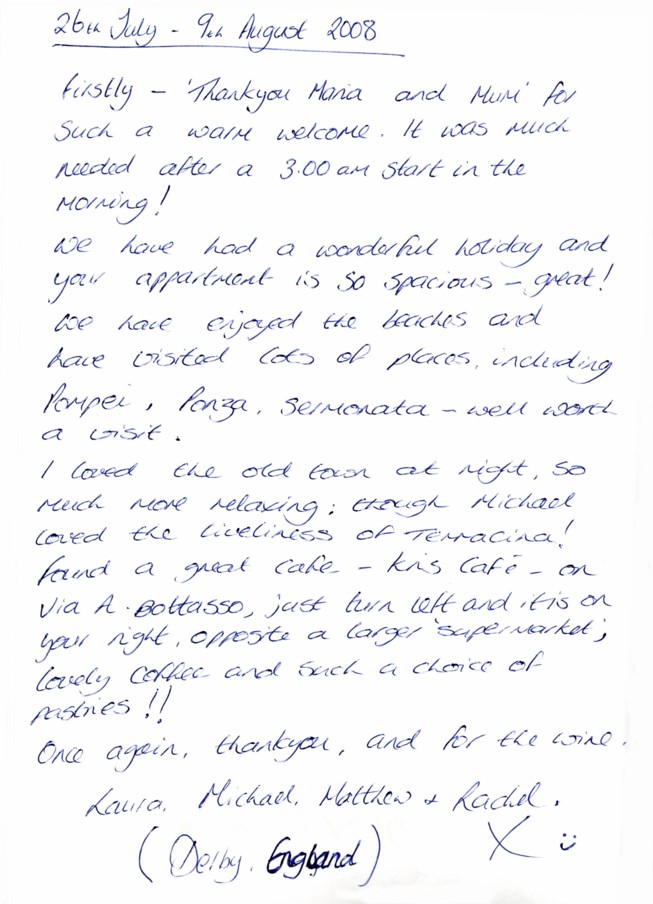 26th July - 9th August 2008
Firstly - 'Thankyou Maria and Mum' for
such a warm welcome. It was much
needed after a 3.00 am start in the
morning!
We have had a wonderful holiday and
your appartment is so spacious - great!
We have enjoyed the beaches and
have visited lots of places, including
Pompei, Ponza, Sermonata - well worth
a visit.
I loved the old town at night, so
much more relaxing; though Michael
loved the liveliness of Terracina!
Found a great cafe - Kris Café - on
Via A. Bottasso, just turn left and it is on
your right, opposite a larger 'supermarket';
lovely coffee and such a choice of
pastries!!
Once again, thankyou, and for the wine.
Laura, Michael, Matthew + Rachel.
(Derby, England) X :)